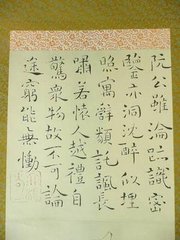 阮公雖淪跡識密
鑒亦洞沈醉似埋
照寓辭類託諷長
嘯若懷人越禮自
驚衆物故不可論
途窮能無慟